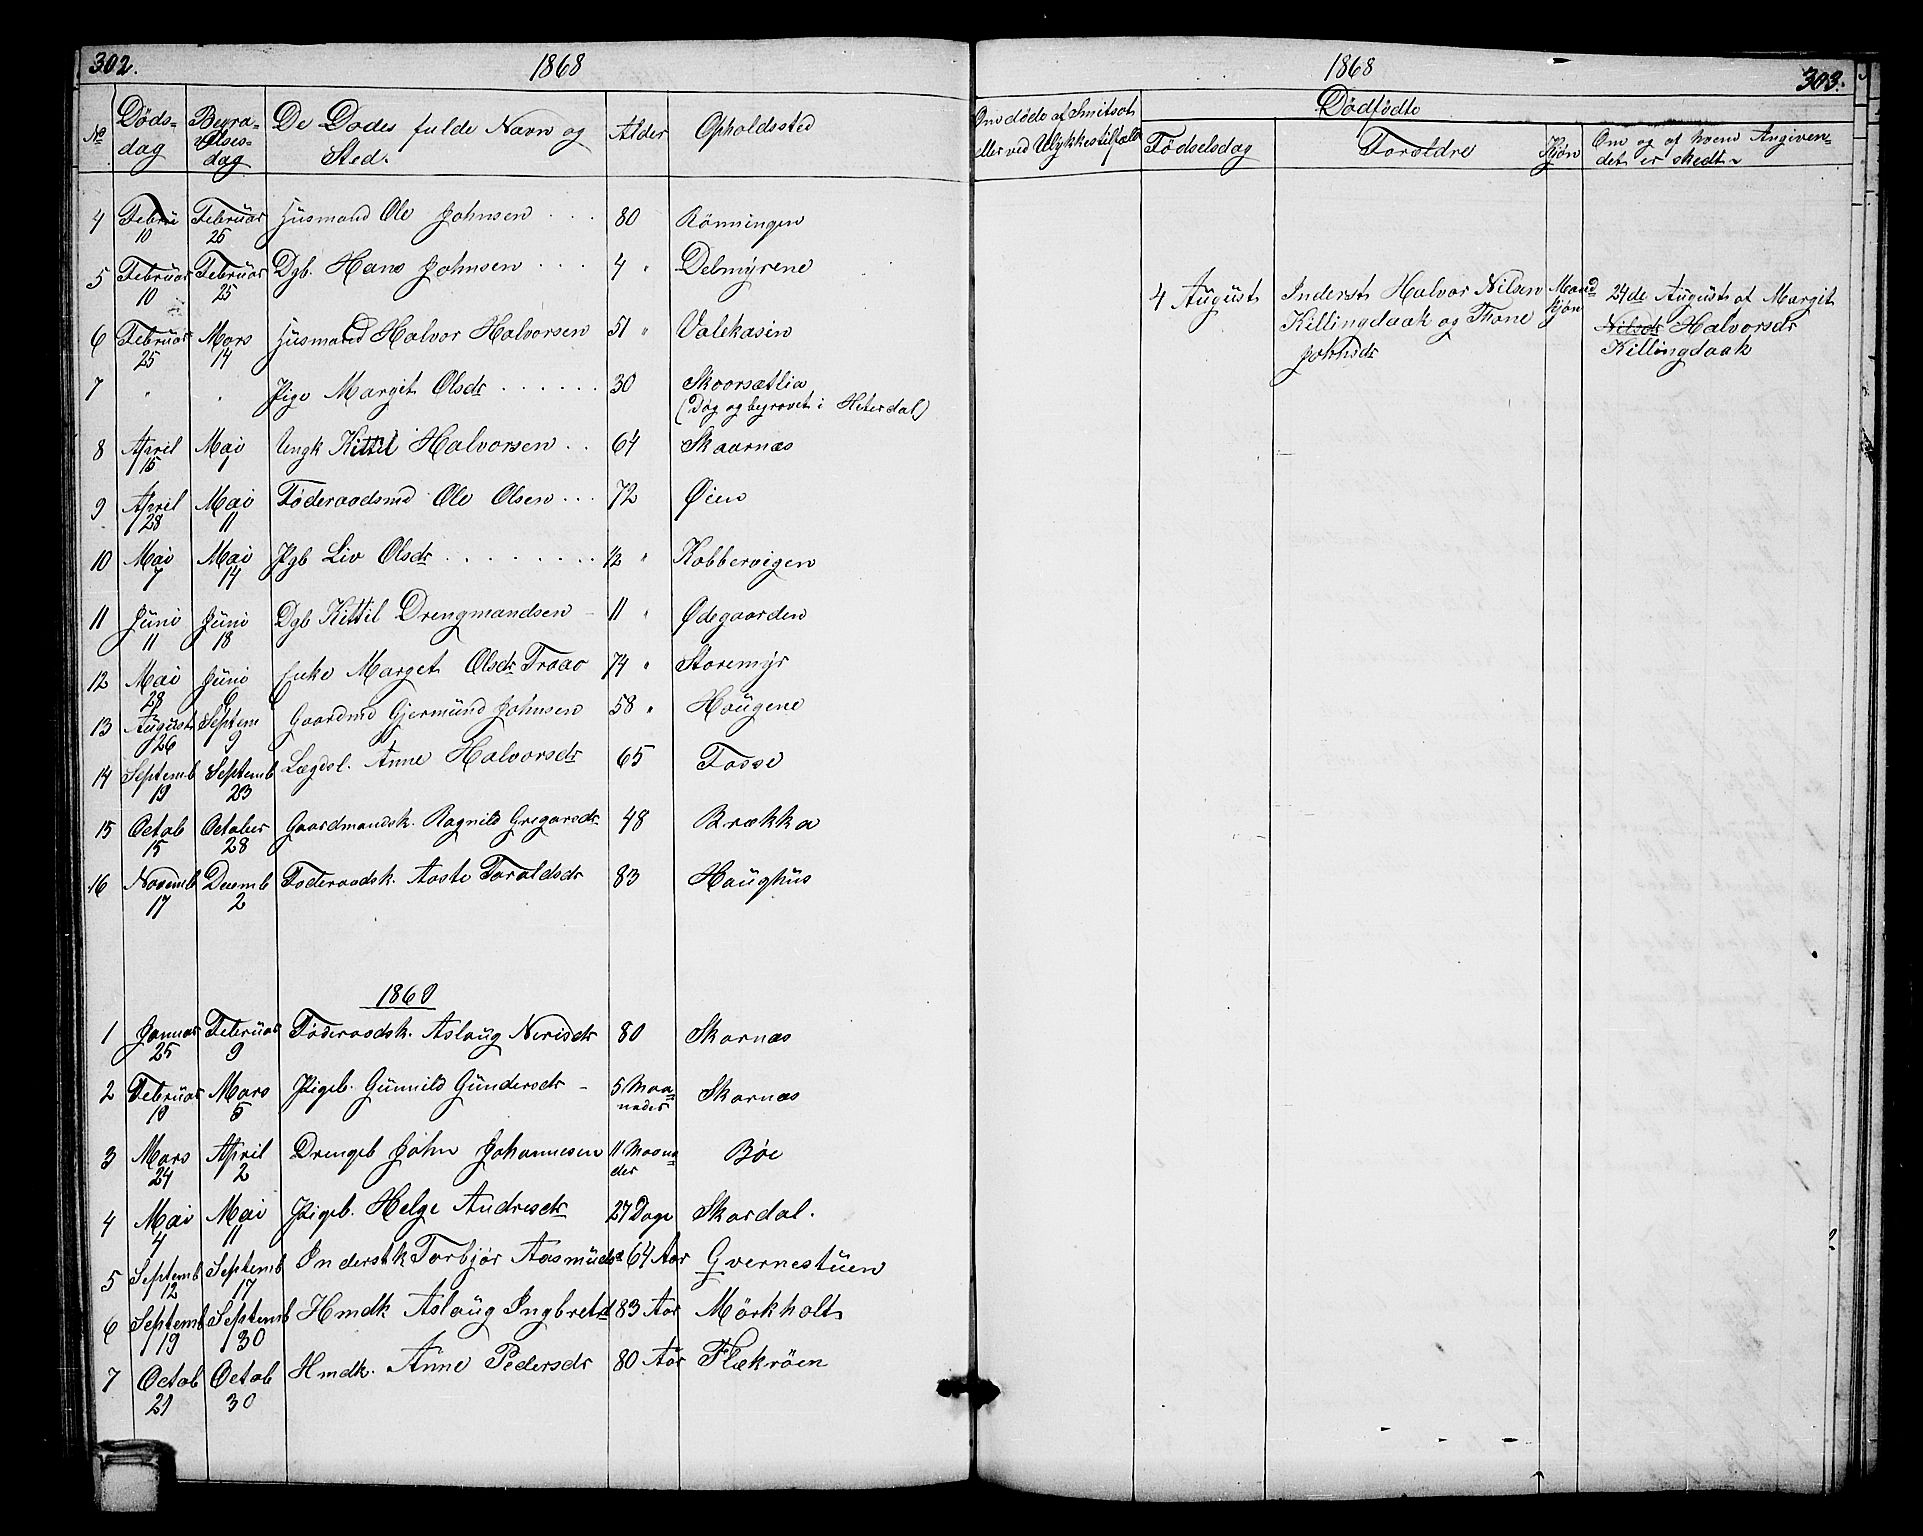 302.
1868
No
Døds-
dag
Begra-
velses-
dag
De Dødes fulde Navn og
Sted.
Alder
Opholdssted
4 Februar 10 Februar 25 Husmand Ole Johnsen . . . 80 Rönningen
5 Februar 10 Februar 25 Dgb. Hans Johnsen . . . 4 " Delmyrene
6 Februar 25 Mars 14 Husmand Halvor Halvorsen 51 " Valekasin
7 " " Pige Margit Olsdr . . . . . . 30 Skoorsætlia
(Døg og begravet i Hiterdal)
8 April 15 Mai 1 Ungk Kittil Halvorsen . . 64 Skaarnæs
9 April 28 Mai 11 Föderaadsmd Ole Olsen . . . 72 Øien
10 Mai 7 Mai 14 Pgb Liv Olsdr . . . . . . . . 12 " Kobbervigen
11 Juni 11 Juni 18 Dgb Kittil Drengmandsen - 11 " Ødegaarden
12 Mai 28 Juni 6 Enke Marget Olsdr Traao 74 " Storemyr
13 August 26 Septem 9 Gaardmd Gjermund Johnsen 58 " Haugene
14 Septemb 19 Septemb 23 Lægdsl. Anne Halvorsdr 65 Fosse
15 Octob 15 October 28 Gaardmandsk. Ragnild Gregarsdr 48 Brække
16 Novemb 17 Decemb 2 Föderaadsk. Aaste Taraldsdr 83 Haughus
1869
1 Januar 25 Februar 9 Föderaadsk. Aslaug Nerisdr 80 Skarnæs
2 Februar 19 Mars 5 Pigeb. Gunnild Gundersdr - 5 Maa-
nader Skarnæs
3 Mars 24 April 2 Drengeb John Johannesen 11 Maana-
der Bøe
4 Mai 4 Mai 11 Pigeb. Helge Andresdr 27 Dage Skardal.
5 Septemb 12 Septemb 17 Inderstk Torbjør Aasmuds 64 Aar Gvernestuen
6 Septemb 19 Septemb 30 Hmdk Aslaug Ingbretsd 83 Aar Mörkholt
7 Octob 21 Octob 30 Hmdk. Anne Pedersdr 80 Aar Flækröen
1868
303.
Om døde af Smitsot
eller ved Ulykkestilfælde
Dødfødte
Fødselsdag
Foreldre
Kjøn
Om og af hvem Angiven-
det er skedt.
4 August Inderst Halvor Nilsen Mand 24de August af Margit
Killingdaak og Thone kjøn Nilsdr Halvorsdr
Johnsdr Killingdaak